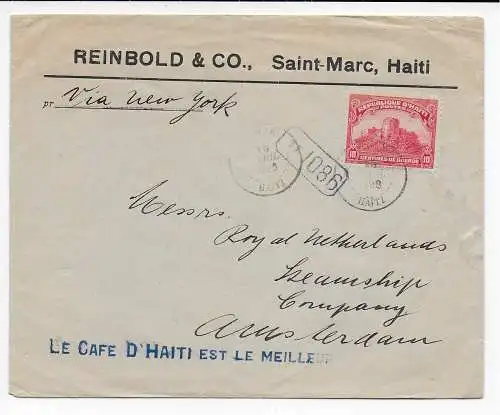 REINBOLD & CO., Saint-Marc, Haiti
pr Via New York
REPUBLIQUE D'HAITI
POSTES
10 10
CENTIMES DE GOURDE
HAITI
1086
HAITI
Messrs.
Royal Netherlands
Steamship
Company
Amsterdam
LE CAFE D'HAITI EST LE MEILLEUR